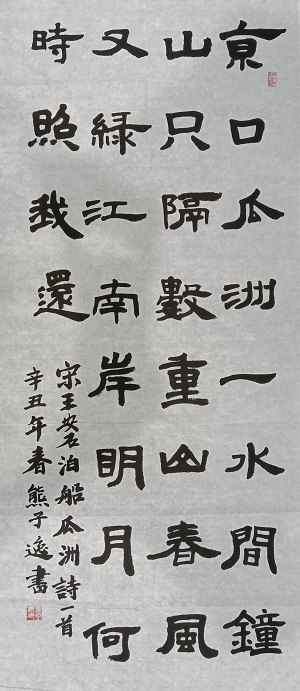 京口瓜洲一水間鐘
山只隔數重山春風
又緑江南岸明月何
時照我還
宋王安石泊船瓜洲詩一首
辛丑年春熊子逸書